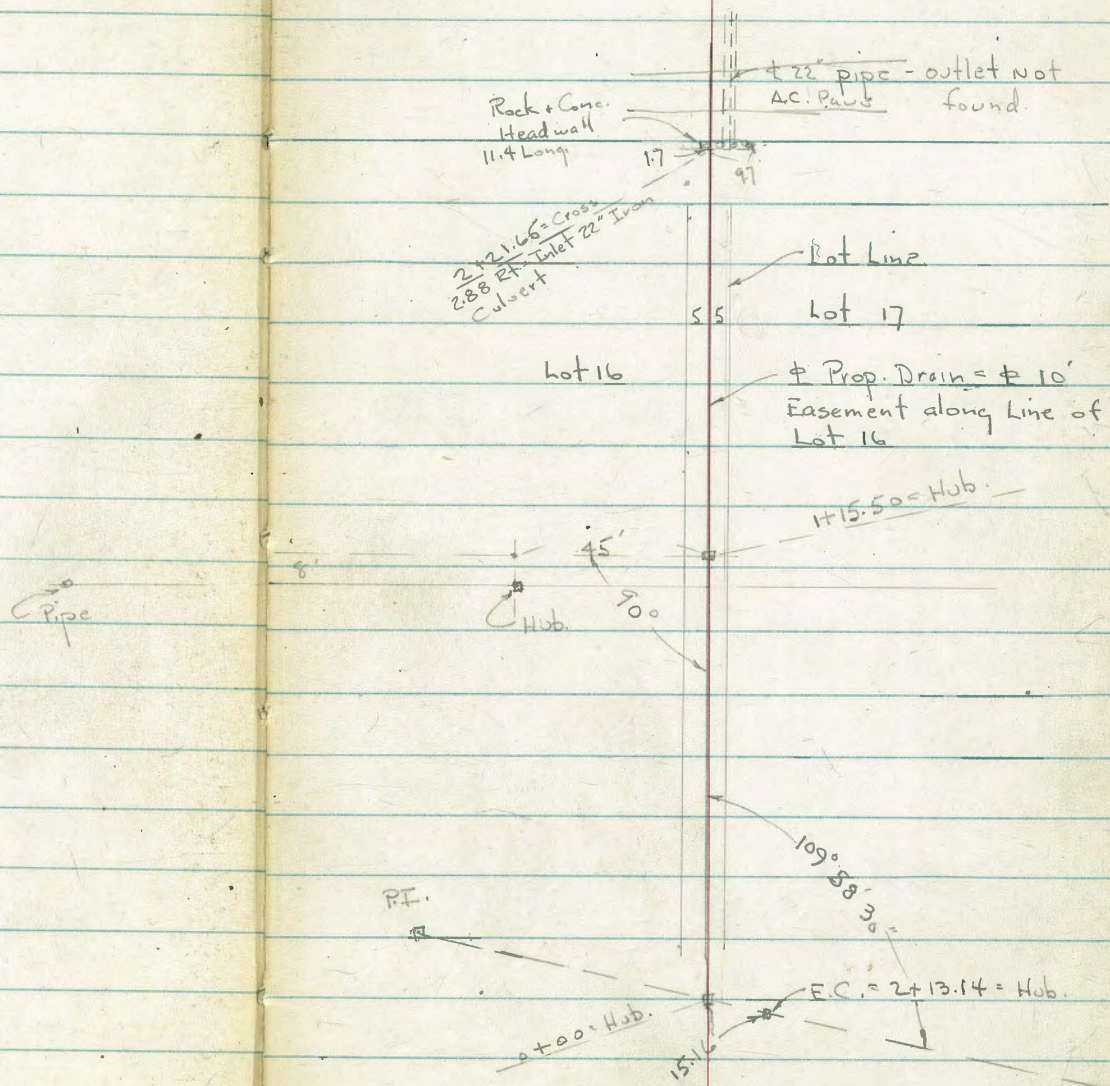 ℄ 22" pipe - outlet Not
found.
A.C. Pav.
Rock & Conc.
Headwall
11.4 Long.
1.7
9.7
2+21.65 = Cross
2.88 Rt = Inlet 22" Iron
Culvert
Lot Line
5 5
Lot 17
Lot 16
℄ Prop. Drain = ℄ 10'
Easement along Line of
Lot 16
1+15.50 = Hub.
45'
8'
Pipe
Hub.
90°
109° 58' 30"
P.I.
E.C. = 2+13.14 = Hub.
0+00 = Hub.
15.16